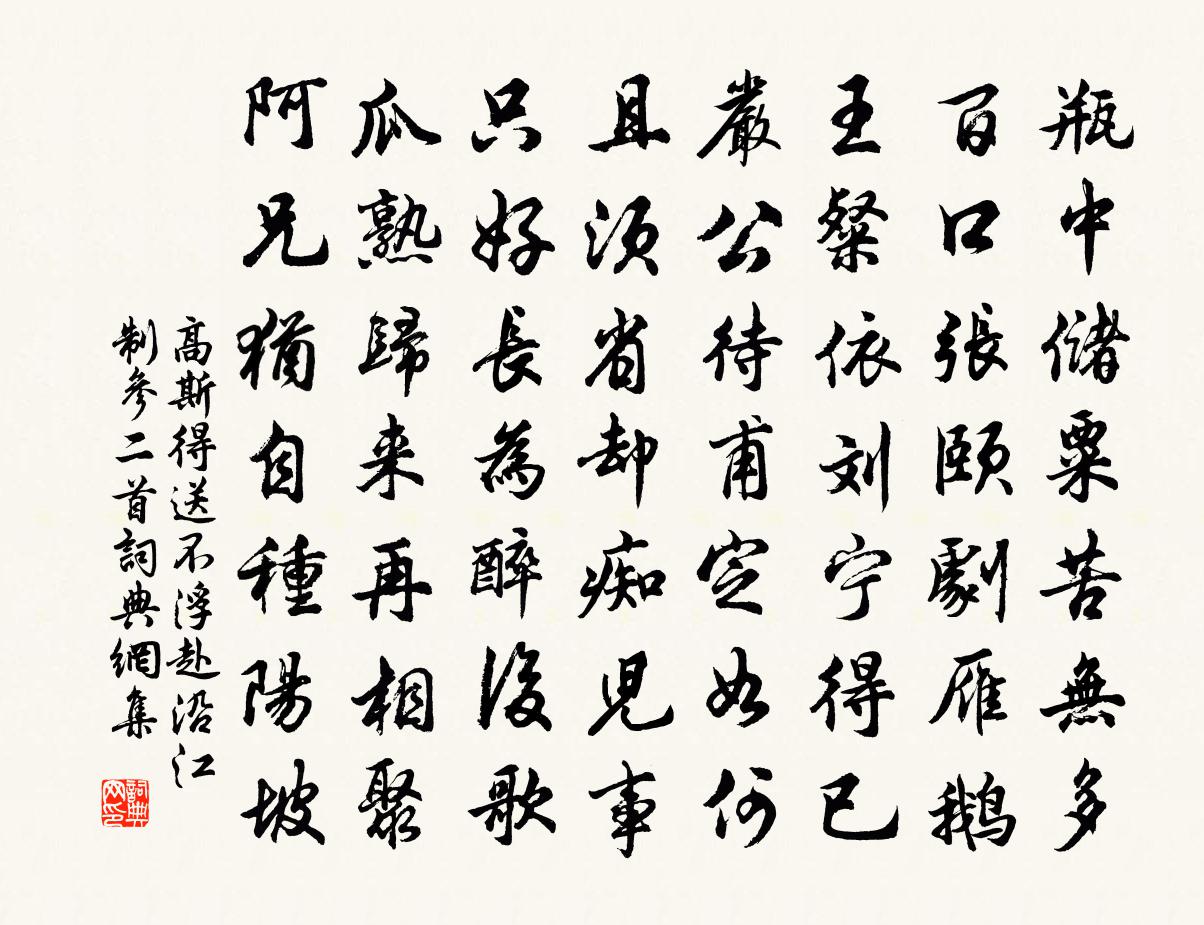 瓶中儲粟苦無多
百口張頤劇雁鹅
王粲依刘宁得已
嚴公待甫定如何
且須省却痴児事
只好長為醉後歌
瓜熟歸来再相聚
阿兄猶自種陽坡
高斯得送不浮赴沿江
制參二首詞典網集
詞典
网印